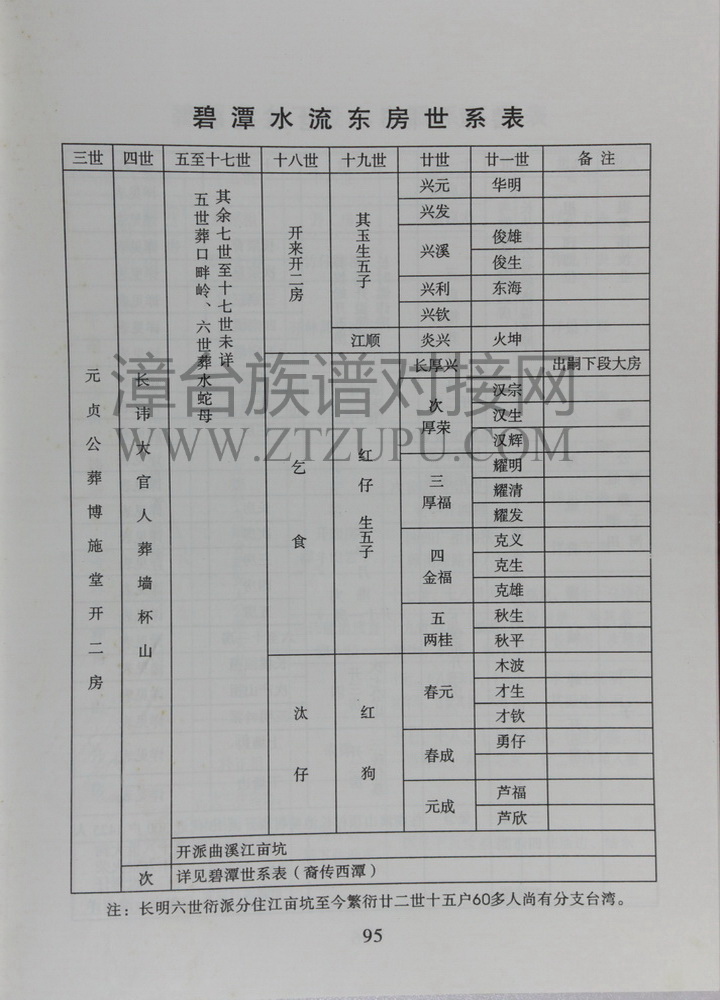 碧潭水流东房世系表
三世 四世 五至十七世 十八世 十九世 廿世 廿一世 备注
元贞公葬博施堂开二房
长讳大官人葬墙杯山
其余七世至十七世未详
五世葬口畔岭、六世葬水蛇母
开来开二房
其玉生五子
兴元 华明
兴发
兴溪 俊雄
俊生
兴利 东海
兴钦
江顺 炎兴 火坤
乞食
红仔生五子
长厚兴 出嗣下段大房
次
厚荣
汉宗
汉生
汉辉
三
厚福
耀明
耀清
耀发
四
金福
克义
克生
克雄
五
两桂
秋生
秋平
汰仔
红狗
春元
木波
才生
才钦
春成
勇仔
元成
芦福
芦欣
开派曲溪江亩坑
次 详见碧潭世系表（裔传西潭）
注：长明六世衍派分住江亩坑至今繁衍廿二世十五户60多人尚有分支台湾。
95
漳台族谱对接网
WWW.ZTZUPU.COM